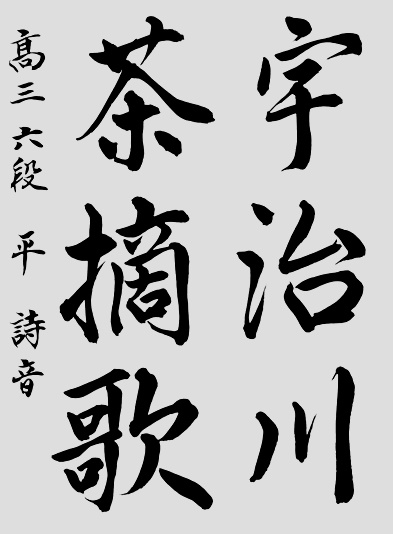 宇治川
茶摘歌
髙三 六段 平 詩音